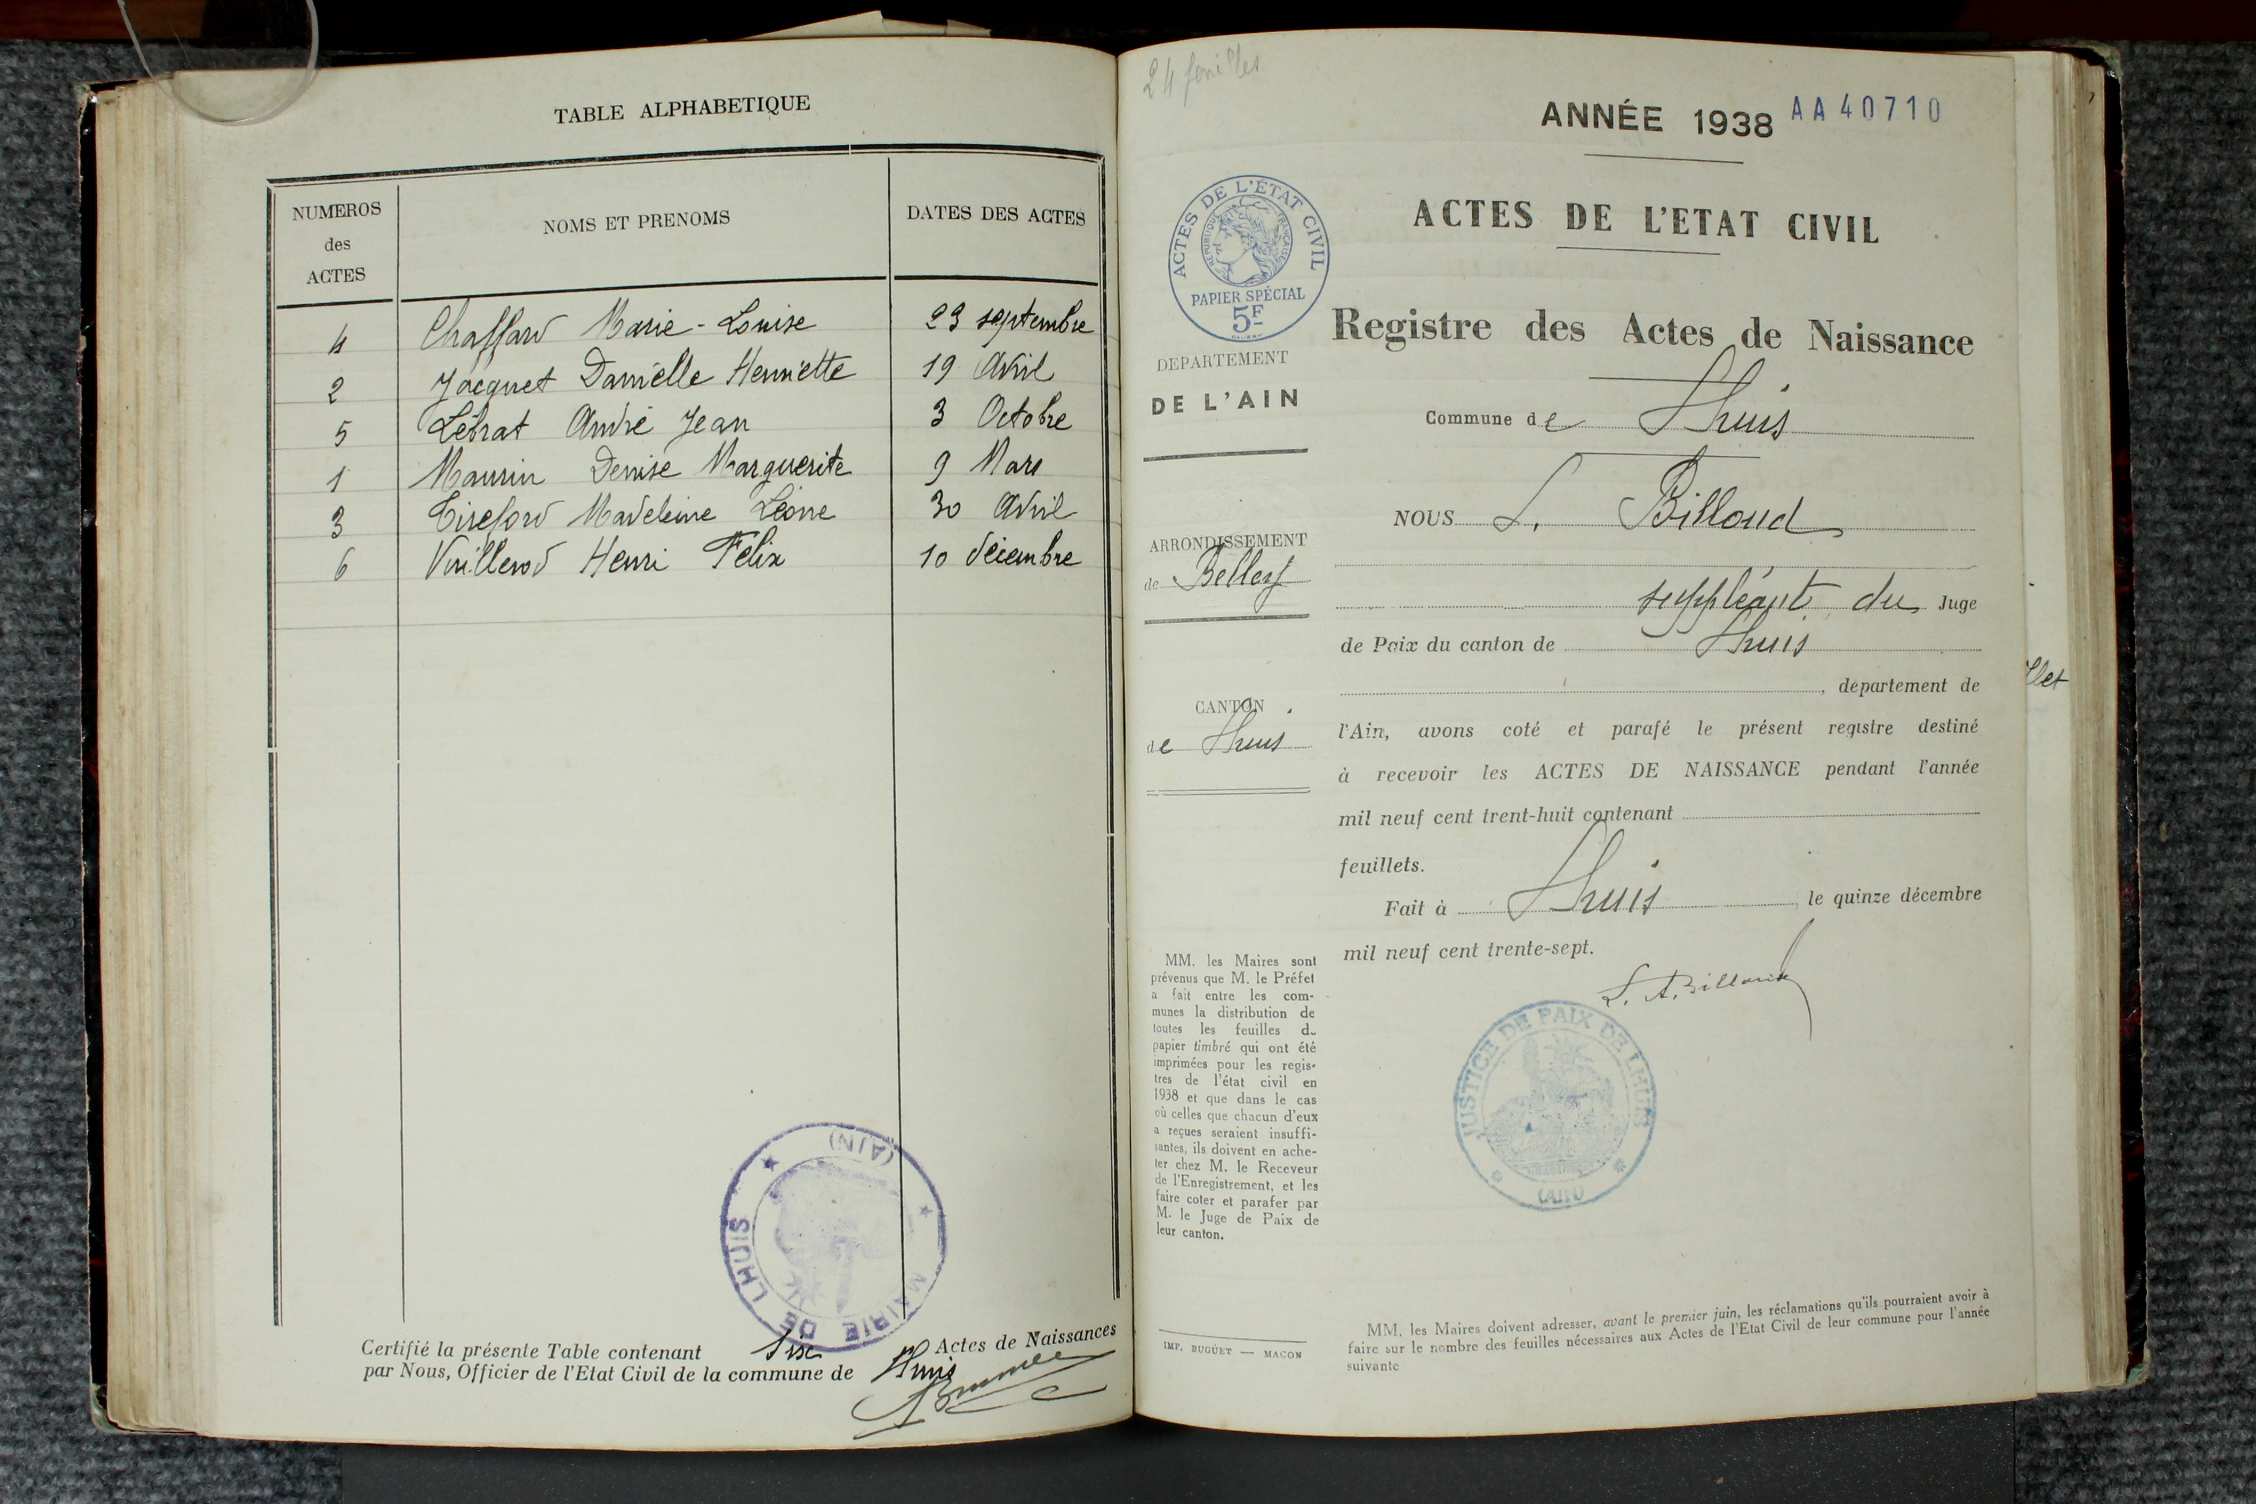 TABLE ALPHABETIQUE
NUMEROS
des
ACTES
NOMS ET PRENOMS
DATES DES ACTES
4 Chaffard Marie-Louise 23 septembre
2 Jacquet Danielle Henriette 19 Avril
5 Lébrat André Jean 3 Octobre
1 Maurin Denise Marguerite 9 Mars
3 Tireford Madeleine Léonne 30 Avril
6 Vuillerod Henri Félix 10 décembre
MAIRIE DE LHUIS
(AIN)
Certifié la présente Table contenant Six Actes de Naissances
par Nous, Officier de l'Etat Civil de la commune de Lhuis
24 feuilles
ANNÉE 1938 AA 40710
ACTES DE L'ETAT CIVIL
ACTES DE L'ÉTAT CIVIL
REPUBLIQUE FRANÇAISE
PAPIER SPÉCIAL
5F
Registre des Actes de Naissance
DEPARTEMENT
DE L'AIN
Commune de Lhuis
NOUS L. Billoud
ARRONDISSEMENT
de Belley
suppléant du Juge
de Paix du canton de Lhuis
, departement de
CANTON
de Lhuis
l'Ain, avons coté et parafé le présent registre destiné
à recevoir les ACTES DE NAISSANCE pendant l'année
mil neuf cent trent-huit contenant
feuillets.
Fait à Lhuis le quinze décembre
mil neuf cent trente-sept.
L. A. Billoud
JUSTICE DE PAIX DE LHUIS
(AIN)
MM. les Maires sont
prévenus que M. le Préfet
a fait entre les com-
munes la distribution de
toutes les feuilles d
papier timbré qui ont été
imprimées pour les regis-
tres de l'état civil en
1938 et que dans le cas
où celles que chacun d'eux
a reçues seraient insuffi-
santes, ils doivent en ache-
ter chez M. le Receveur
de l'Enregistrement, et les
faire coter et parafer par
M. le Juge de Paix de
leur canton.
IMP. BUGUET — MACON
MM. les Maires doivent adresser, avant le premier juin, les réclamations qu'ils pourraient avoir à
faire sur le nombre des feuilles nécessaires aux Actes de l'Etat Civil de leur commune pour l'année
suivante
llet